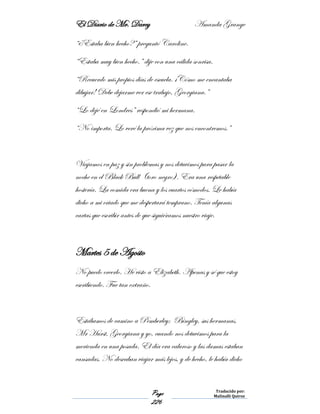 El Diario de Mr. Darcy Amanda Grange
“¿Estaba bien hecho?” preguntó Caroline.
“Estaba muy bien hecho.” dije con una cálida sonrisa.
“Recuerdo mis propios días de escuela. ¡Cómo me encantaba
dibujar! Debe dejarme ver ese trabajo, Georgiana.”
“Lo dejé en Londres” respondió mi hermana.
“No importa. Lo veré la próxima vez que nos encontremos.”
Viajamos en paz y sin problemas y nos detuvimos para pasar la
noche en el Black Bull (toro negro). Era una respetable
hostería. La comida era buena y los cuartos cómodos. Le había
dicho a mi criado que me despertará temprano. Tenía algunas
cartas que escribir antes de que siguiéramos nuestro viaje.
Martes 5 de Agosto
No puedo creerlo. He visto a Elizabeth. Apenas y sé que estoy
escribiendo. Fue tan extraño.
Estábamos de camino a Pemberley: Bingley, sus hermanas,
Mr Hurst, Georgiana y yo, cuando nos detuvimos para la
merienda en una posada. El día era caluroso y las damas estaban
cansadas. No deseaban viajar más lejos, y de hecho, le había dicho
Page
226
Traducido por:
Malinalli Quiroz